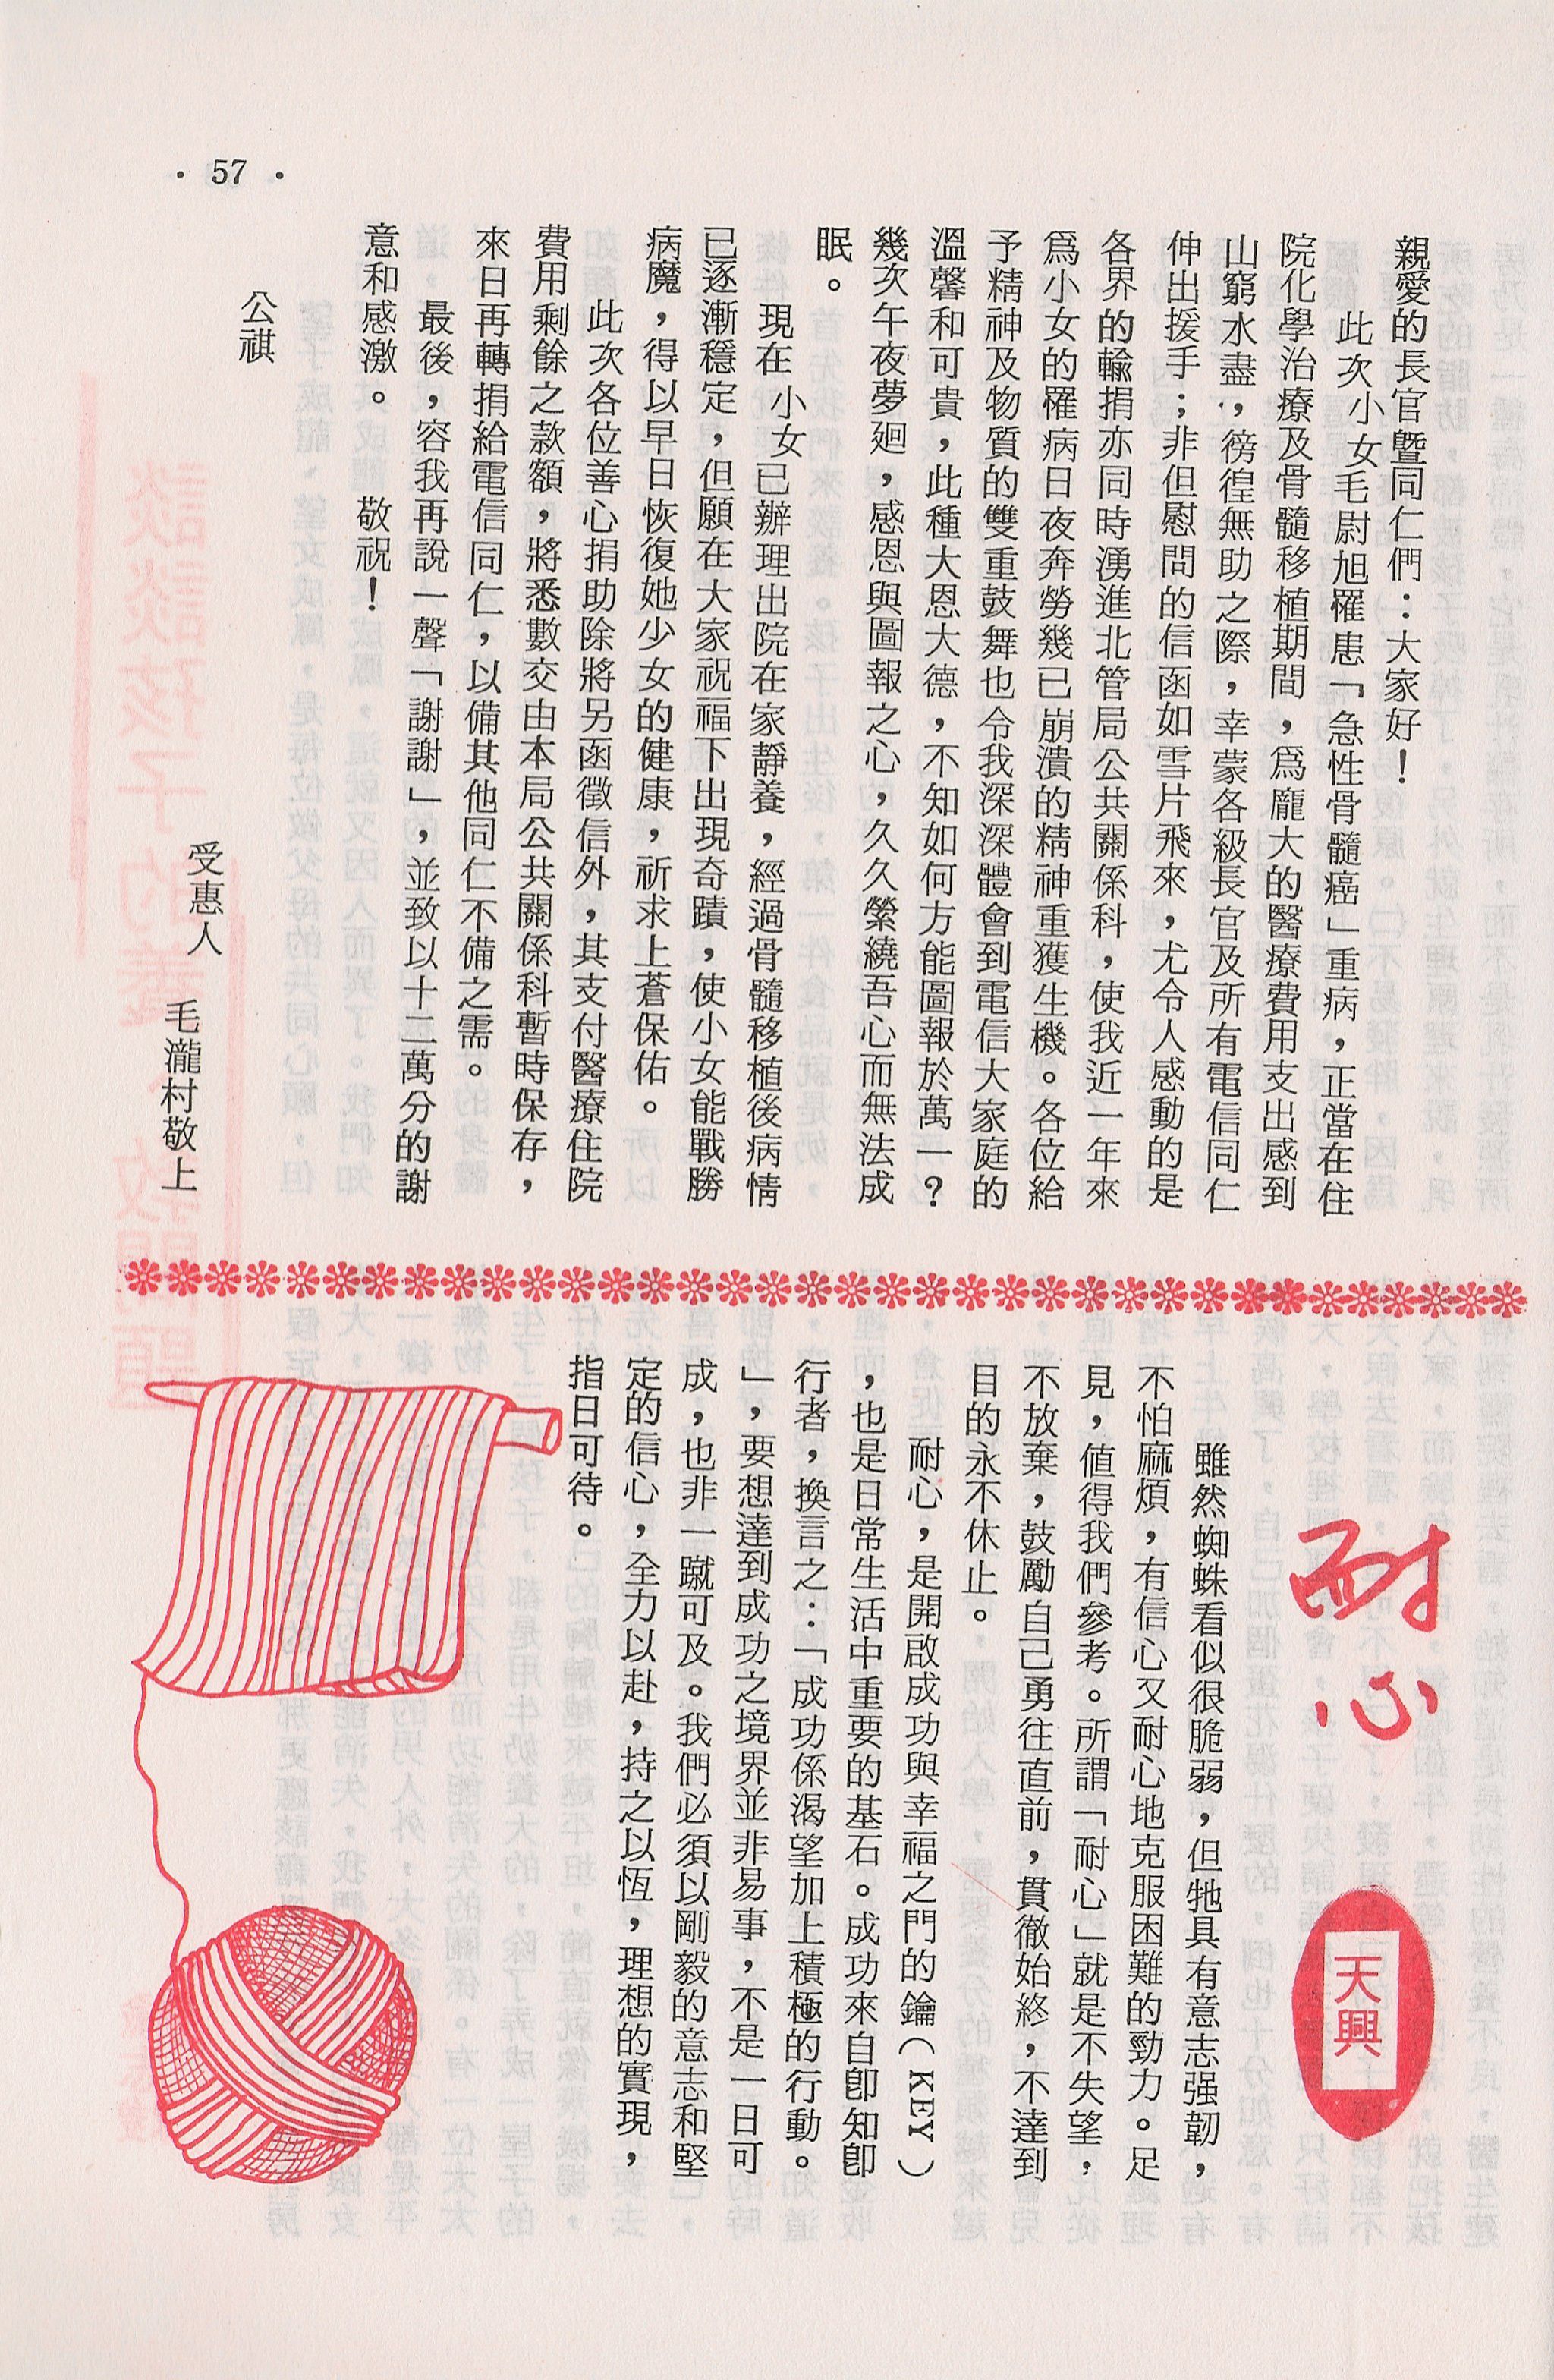 • 57 •
親愛的長官暨同仁們：大家好！
此次小女毛尉旭罹患「急性骨髓癌」重病，正當在住
院化學治療及骨髓移植期間，爲龐大的醫療費用支出感到
山窮水盡，徬徨無助之際，幸蒙各級長官及所有電信同仁
伸出援手；非但慰問的信函如雪片飛來，尤令人感動的是
各界的輸捐亦同時湧進北管局公共關係科，使我近一年來
爲小女的罹病日夜奔勞幾已崩潰的精神重獲生機。各位給
予精神及物質的雙重鼓舞也令我深深體會到電信大家庭的
溫馨和可貴，此種大恩大德，不知如何方能圖報於萬一？
幾次午夜夢廻，感恩與圖報之心，久久縈繞吾心而無法成
眠。
現在小女已辦理出院在家靜養，經過骨髓移植後病情
已逐漸穩定，但願在大家祝福下出現奇蹟，使小女能戰勝
病魔，得以早日恢復她少女的健康，祈求上蒼保佑。
此次各位善心捐助除將另函徵信外，其支付醫療住院
費用剩餘之款額，將悉數交由本局公共關係科暫時保存，
來日再轉捐給電信同仁，以備其他同仁不備之需。
最後，容我再說一聲「謝謝」，並致以十二萬分的謝
意和感激。　敬祝！
公祺
受惠人　毛瀧村敬上
耐心
天興
雖然蜘蛛看似很脆弱，但牠具有意志强韌，
不怕麻煩，有信心又耐心地克服困難的勁力。足
見，値得我們參考。所謂「耐心」就是不失望，
不放棄，鼓勵自己勇往直前，貫徹始終，不達到
目的永不休止。
耐心，是開啟成功與幸福之門的鑰（KEY）
，也是日常生活中重要的基石。成功來自卽知卽
行者，換言之：「成功係渴望加上積極的行動。
」，要想達到成功之境界並非易事，不是一日可
成，也非一蹴可及。我們必須以剛毅的意志和堅
定的信心，全力以赴，持之以恆，理想的實現，
指日可待。